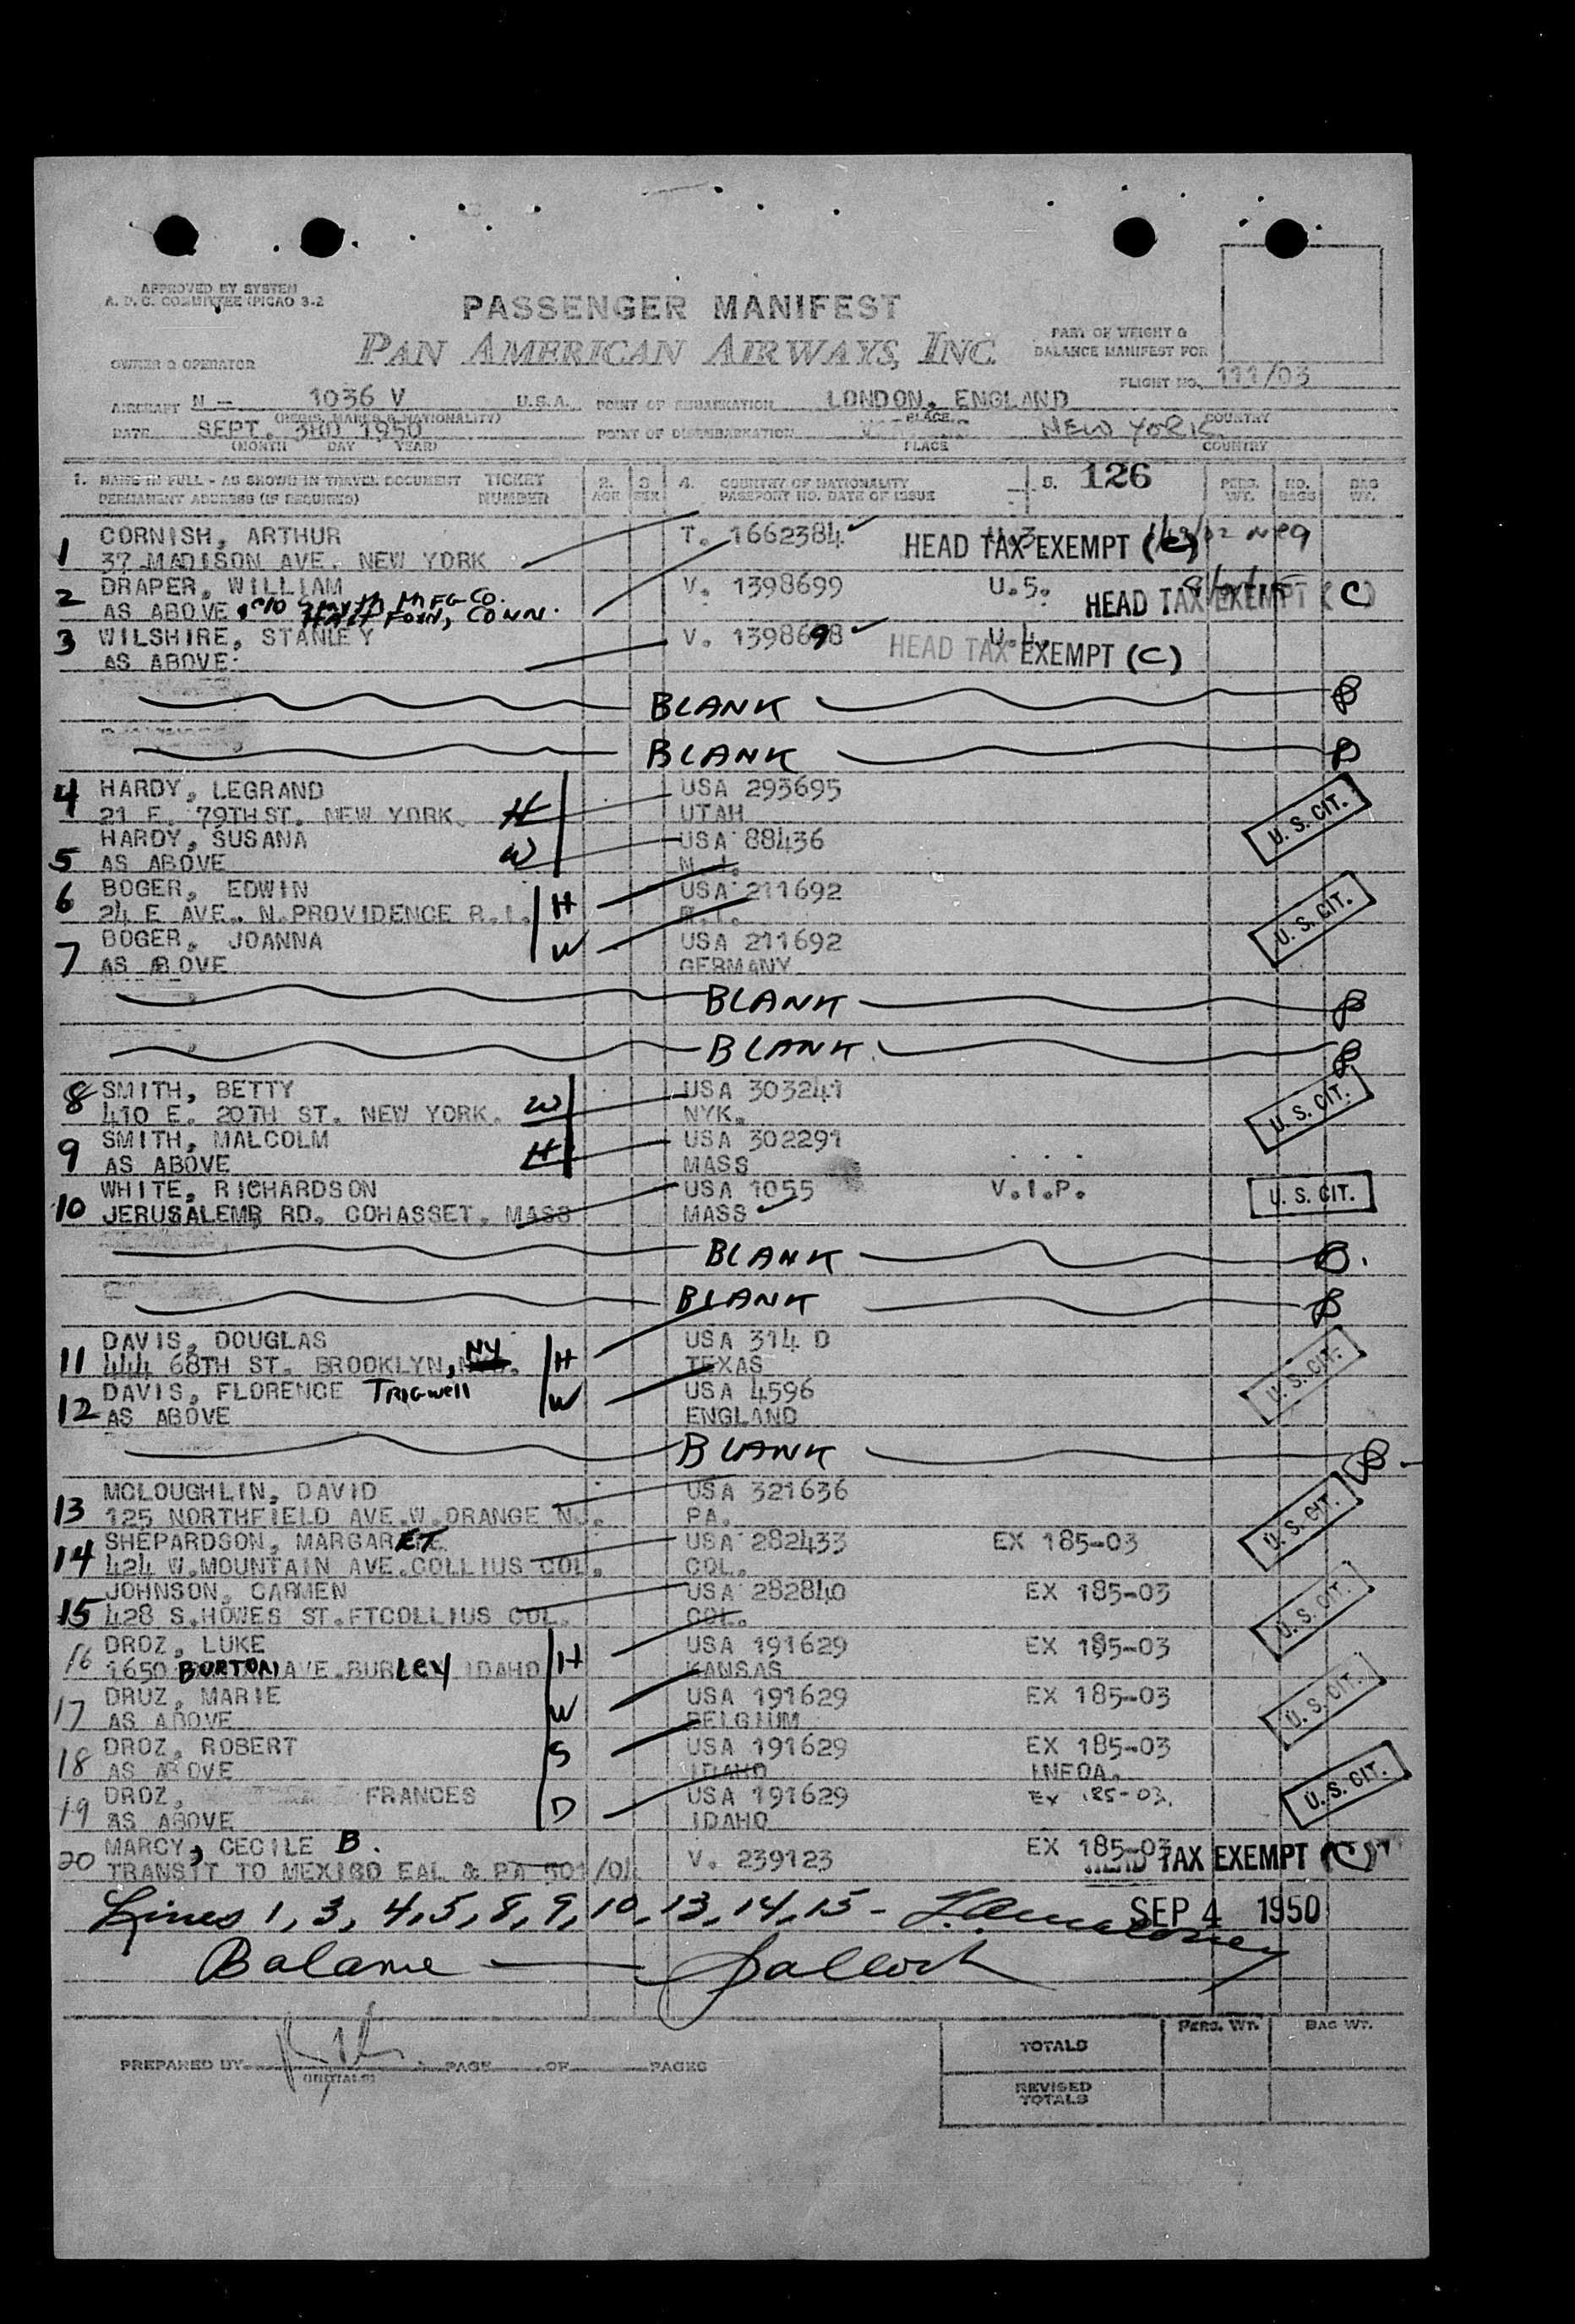 APPROVED BY SYSTEM
A. D. C. COMMITTEE (PICAO 3-2
PASSENGER MANIFEST
PAN AMERICAN AIRWAYS, INC.
PART OF WEIGHT &
BALANCE MANIFEST FOR
OWNER & OPERATOR
FLIGHT NO. 111/03
AIRCRAFT N - 1036 V U.S.A. POINT OF EMBARKATION LONDON, ENGLAND
(REGIS. MARKS & NATIONALITY) PLACE COUNTRY
DATE SEPT. 3RD 1950 POINT OF DISEMBARKATION NEW YORK
(MONTH DAY YEAR) PLACE COUNTRY
1. NAME IN FULL - AS SHOWN IN TRAVEL DOCUMENT TICKET 2. 3 4. COUNTRY OF NATIONALITY 5. 126 PERS. NO. BAG
PERMANENT ADDRESS (IF REQUIRED) NUMBER AGE SEX PASSPORT NO. DATE OF ISSUE WT. BAGS WT.
CORNISH, ARTHUR T. 1662384
1 37 MADISON AVE. NEW YORK HEAD TAX EXEMPT (C)
DRAPER, WILLIAM V. 1398699 U.5.
2 AS ABOVE, c/o Smyth MFG Co. HEAD TAX EXEMPT (C)
HARTFORD, CONN.
3 WILSHIRE, STANLEY V. 1398698 U.4.
AS ABOVE. HEAD TAX EXEMPT (C)
BLANK
BLANK
4 HARDY, LEGRAND USA 293695
21 E. 79TH ST. NEW YORK. H UTAH U. S. CIT.
HARDY, SUSANA USA 88436
5 AS ABOVE W N.J.
6 BOGER, EDWIN USA 211692
24 E AVE. N.PROVIDENCE R.I. H R.I. U. S. CIT.
BOGER, JOANNA USA 211692
7 AS ABOVE W GERMANY
BLANK
BLANK
8 SMITH, BETTY USA 303241
410 E. 20TH ST. NEW YORK. W NYK. U. S. CIT.
9 SMITH, MALCOLM USA 302291
AS ABOVE H MASS
WHITE, RICHARDSON USA 1055 V.I.P. U. S. CIT.
10 JERUSALEMB RD. COHASSET. MASS MASS
BLANK
BLANK
DAVIS, DOUGLAS USA 314 D
11 444 68TH ST. BROOKLYN, NY H TEXAS U. S. CIT.
DAVIS, FLORENCE TRIGWELL W USA 4596
12 AS ABOVE ENGLAND
BLANK
MCLOUGHLIN, DAVID USA 321636
13 125 NORTHFIELD AVE.W.ORANGE NJ. PA. U. S. CIT.
SHEPARDSON, MARGARET USA 282433 EX 185-03
14 424 W.MOUNTAIN AVE.COLLIUS COL. COL.
JOHNSON, CARMEN USA 282840 EX 185-03
15 428 S.HOWES ST.FTCOLLIUS COL. COL. U. S. CIT.
DROZ, LUKE USA 191629 EX 185-03
16 1650 BURTON AVE.BURLEY IDAHO H KANSAS
DRUZ, MARIE USA 191629 EX 185-03 U. S. CIT.
17 AS ABOVE W BELGIUM
DROZ, ROBERT USA 191629 EX 185-03
18 AS ABOVE S IDAHO
DROZ, FRANCES USA 191629 EX 185-03. U. S. CIT.
19 AS ABOVE D IDAHO
MARCY, CECILE B. V. 239123 EX 185-03
20 TRANSIT TO MEXICO EAL & PA 501/04 HEAD TAX EXEMPT (C)
Lines 1, 3, 4, 5, 8, 9, 10, 13, 14, 15 - SEP 4 1950
Balance
PREPARED BY (INITIALS) PAGE OF PAGES
TOTALS PERS. WT. BAG WT.
REVISED
TOTALS